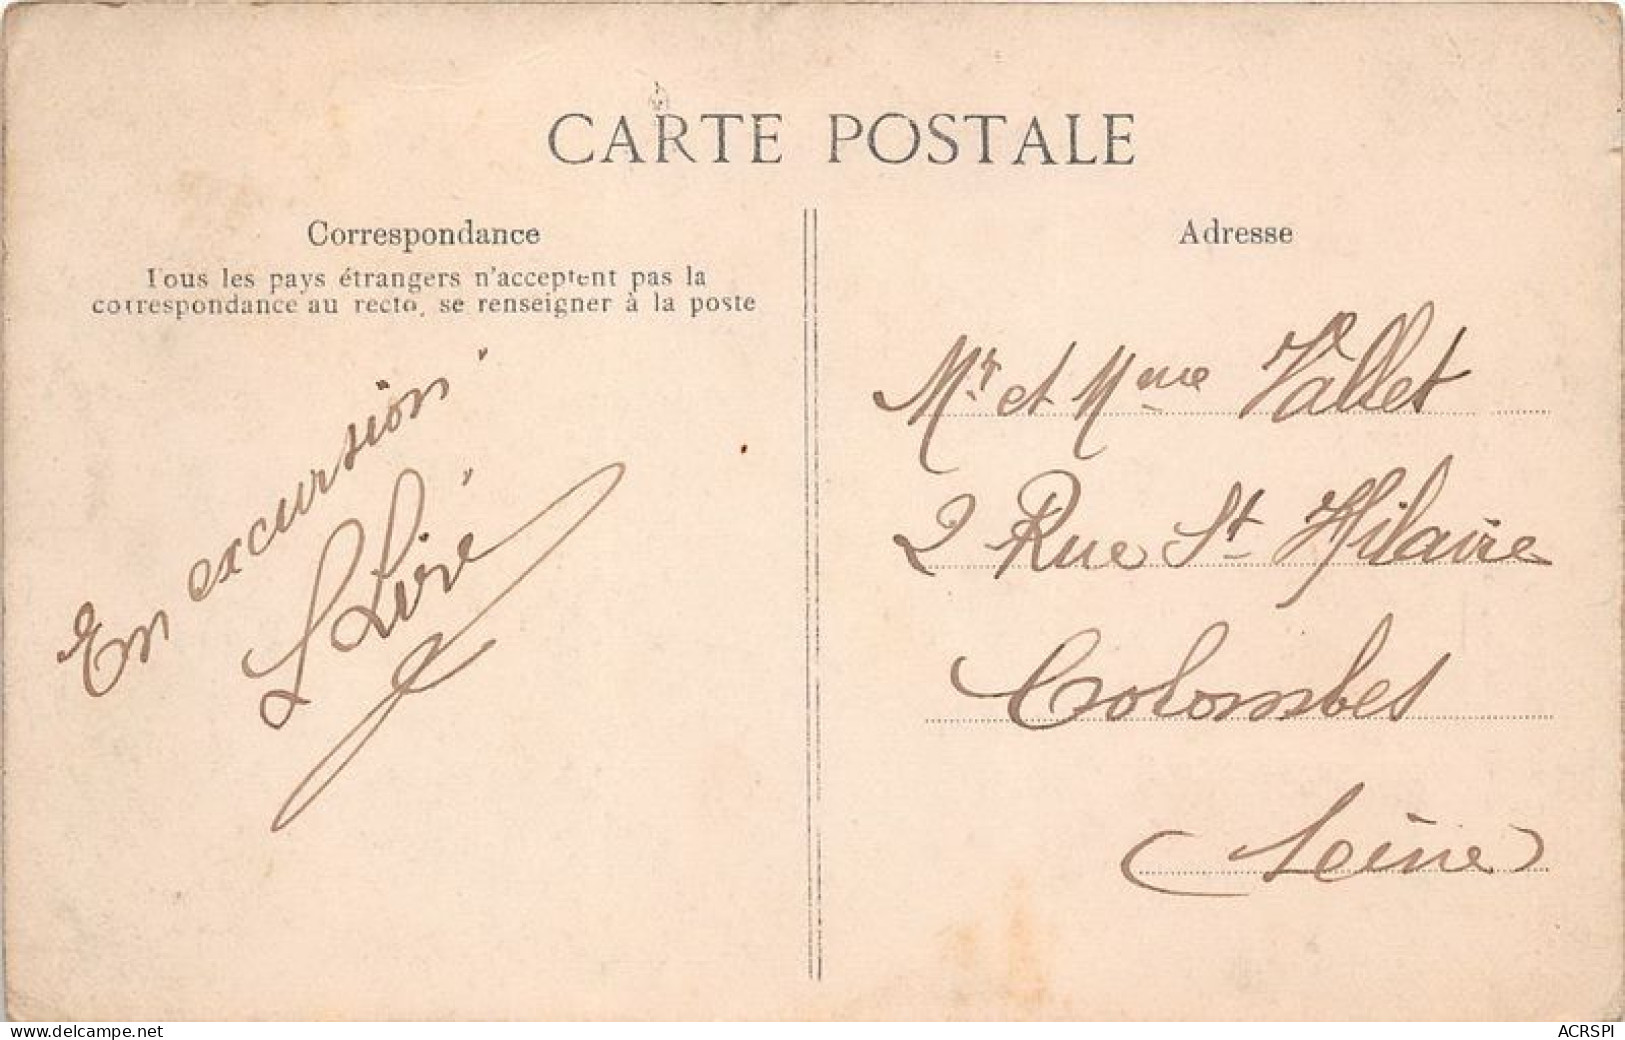 CARTE POSTALE
Correspondance
Tous les pays étrangers n'acceptent pas la
correspondance au recto, se renseigner à la poste
En excursion
Adresse
Mr et Mme Vallet
2 Rue St Hilaire
Colombes
(Seine)
www.delcampe.net
ACRSPI